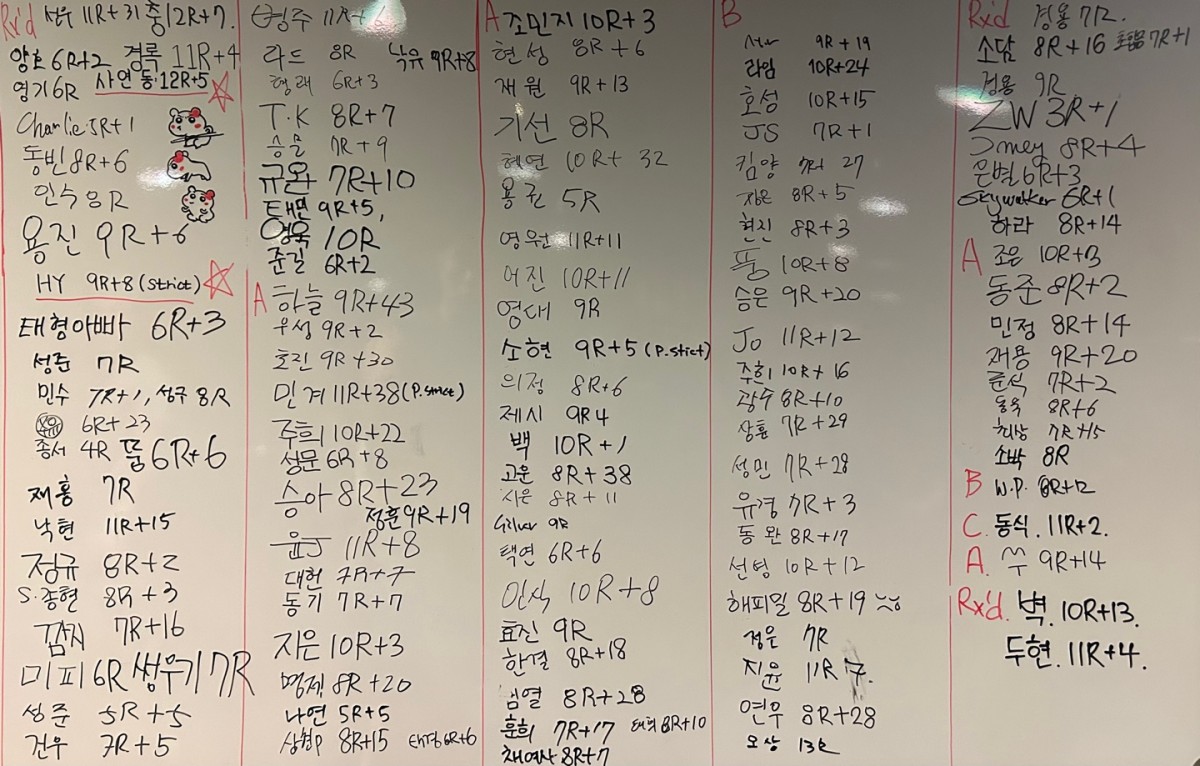 Rx'd 성우 11R+31 충 12R+7.
양호 6R+2 경록 11R+4
영기 6R 사연동:12R+5
Charlie 5R+1
동빈 8R+6
민수 8R
용진 9R+6
HY 9R+8 (strict)
태형아빠 6R+3
성준 7R
민수 7R+1, 성구 8R
6R+23
종서 4R 뚬 6R+6
재홍 7R
낙현 11R+15
정규 8R+2
S.종현 8R+3
깜지 7R+16
미피 6R 쌩우기 7R
성준 5R+5
건우 7R+5
영주 11R+6
라드 8R 낙유 9R+8
형래 6R+3
T.K 8R+7
승물 7R+9
규완 7R+10
태민 9R+5,
영욱 10R
준길 6R+2
A 하늘 9R+43
우성 9R+2
호진 9R+30
민경 11R+38 (P.strict)
주희 10R+22
성문 6R+8
승아 8R+23
정훈 9R+19
윤J 11R+8
대헌 7R+7
동기 7R+7
지은 10R+3
명제 8R+20
나연 5R+5
상협P 8R+15 태경 6R+6
A 조민지 10R+3
현성 8R+6
재원 9R+13
기선 8R
혜연 10R+32
용권 5R
영원 11R+11
어진 10R+11
영대 9R
소현 9R+5 (P.stict)
의정 8R+6
제시 9R4
백 10R+1
고운 8R+38
시은 8R+11
Silver 9R
택연 6R+6
인식 10R+8
효진 9R
한결 8R+18
남열 8R+28
훈희 7R+17 태혁 8R+10
채여사 8R+7
B
9R+19
라임 10R+24
호성 10R+15
JS 7R+1
킴양 7R+27
지은 8R+5
현진 8R+3
뚱 10R+8
승은 9R+20
Jo 11R+12
주희 10R+16
광수 8R+10
상훈 7R+29
성민 7R+28
유경 7R+3
동완 8R+17
선영 10R+12
해피밀 8R+19
정운 7R
지윤 11R 7.
연우 8R+28
오상 13R
Rx'd 경용 7R.
소담 8R+16 7R+1
정용 9R
ZW 3R+1
Jmey 8R+4
은별 6R+3
Skywalker 6R+1
하라 8R+14
A 조은 10R+3
동준 8R+2
민정 8R+14
재용 9R+20
준식 7R+2
동욱 8R+6
희상 7R+15
소박 8R
B W.P. 8R+12
C. 동식. 11R+2.
A. 9R+14
Rx'd. 벽. 10R+13.
두현. 11R+4.